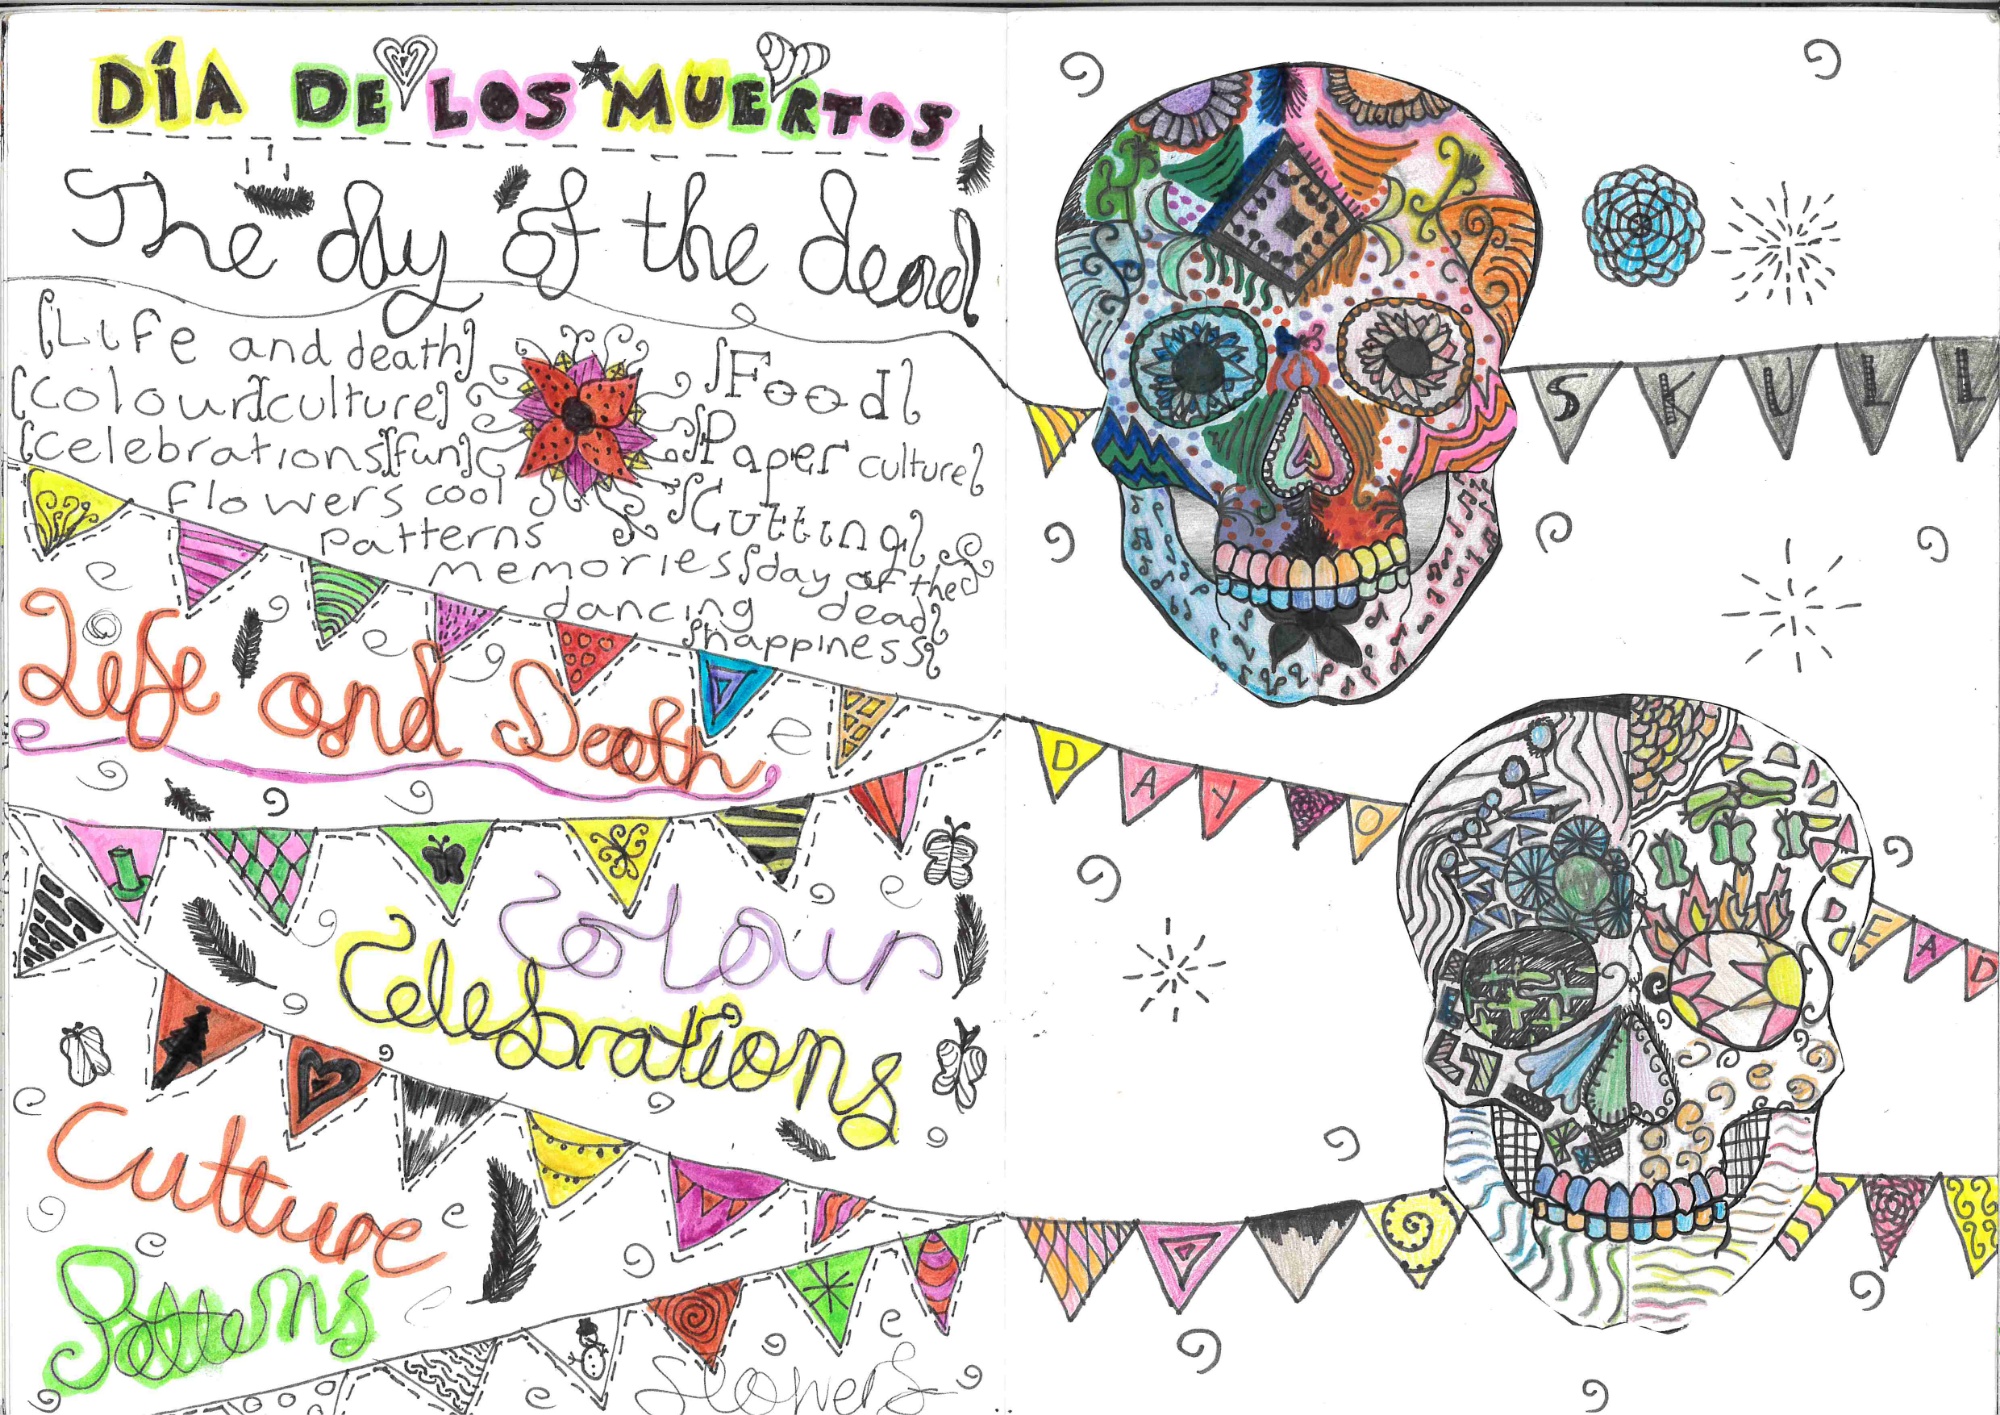 DÍA DE LOS MUERTOS
The day of the dead
Life and death
colour culture
celebrations fun
flowers cool
patterns
memories
dancing
Food
Paper culture
Cutting
day of the
dead
happiness
Life and Death
Colour
Celebrations
Culture
Patterns
flowers
SKULL
DAY O
EAD